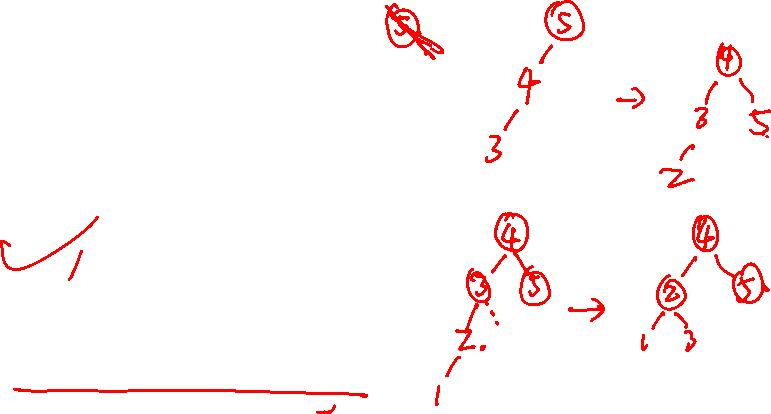 5
5
4
3
→
4
3
5
2
4
3
5
2
1
→
4
2
5
1
3